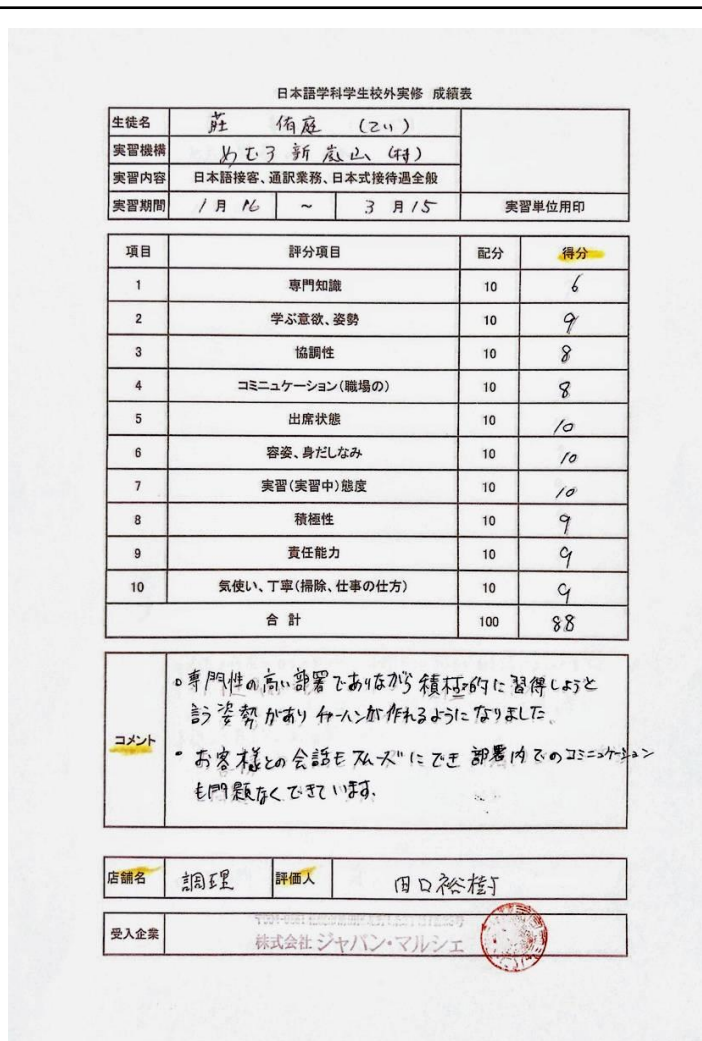 日本語学科学生校外実修 成績表
生徒名 莊 侑庭 (てい)
実習機構 めむろ新嵐山(株)
実習内容 日本語接客、通訳業務、日本式接待過全般
実習期間 1月16 ~ 3月15 実習単位用印
項目 評分項目 配分 得分
1 専門知識 10 6
2 学ぶ意欲、姿勢 10 9
3 協調性 10 8
4 コミニュケーション(職場の) 10 8
5 出席状態 10 10
6 容姿、身だしなみ 10 10
7 実習(実習中)態度 10 10
8 積極性 10 9
9 責任能力 10 9
10 気使い、丁寧(掃除、仕事の仕方) 10 9
合計 100 88
コメント
○専門性の高い部署でありながら積極的に習得しようと
言う姿勢がありチャーハンが作れるようになりました。
・お客様との会話もスムーズにでき部署内でのコミニュケーション
も問題なくできています。
店舗名 調理 評価人 田口裕樹
受入企業
株式会社ジャパン・マルシェ